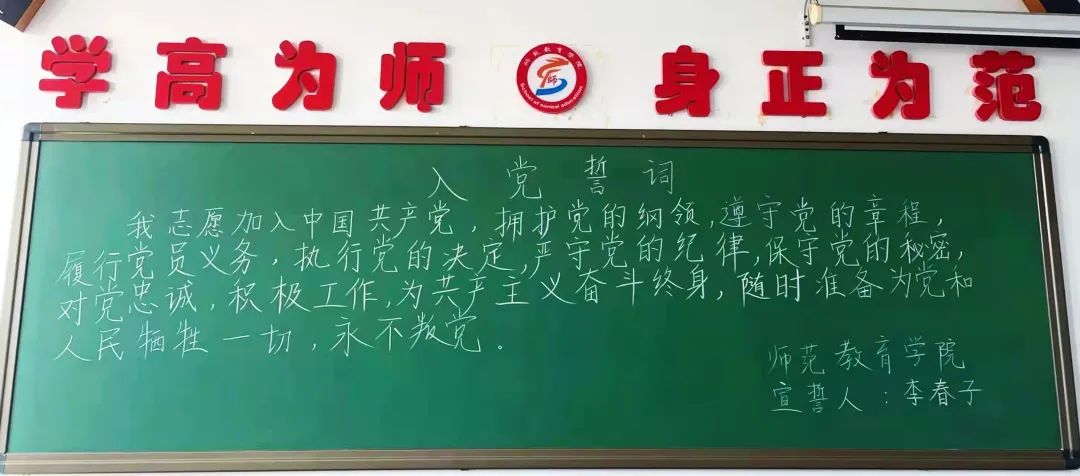 学高为师 身正为范
师范教育学院
师
School of normal education
入党誓词
我志愿加入中国共产党，拥护党的纲领，遵守党的章程，
履行党员义务，执行党的决定，严守党的纪律，保守党的秘密，
对党忠诚，积极工作，为共产主义奋斗终身，随时准备为党和
人民牺牲一切，永不叛党。
师范教育学院
宣誓人：李春子